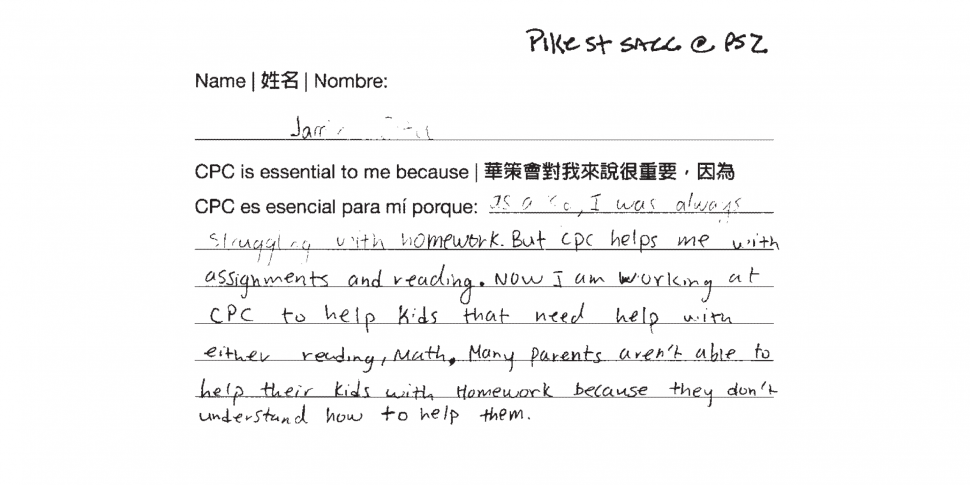 Pike St SACC @ PS2
Name | 姓名 | Nombre:
CPC is essential to me because | 華策會對我來說很重要，因為
CPC es esencial para mí porque: as a , I was always
struggling with homework. But cpc helps me with
assignments and reading. Now I am working at
CPC to help kids that need help with
either reading, Math. Many parents aren't able to
help their kids with Homework because they don't
understand how to help them.